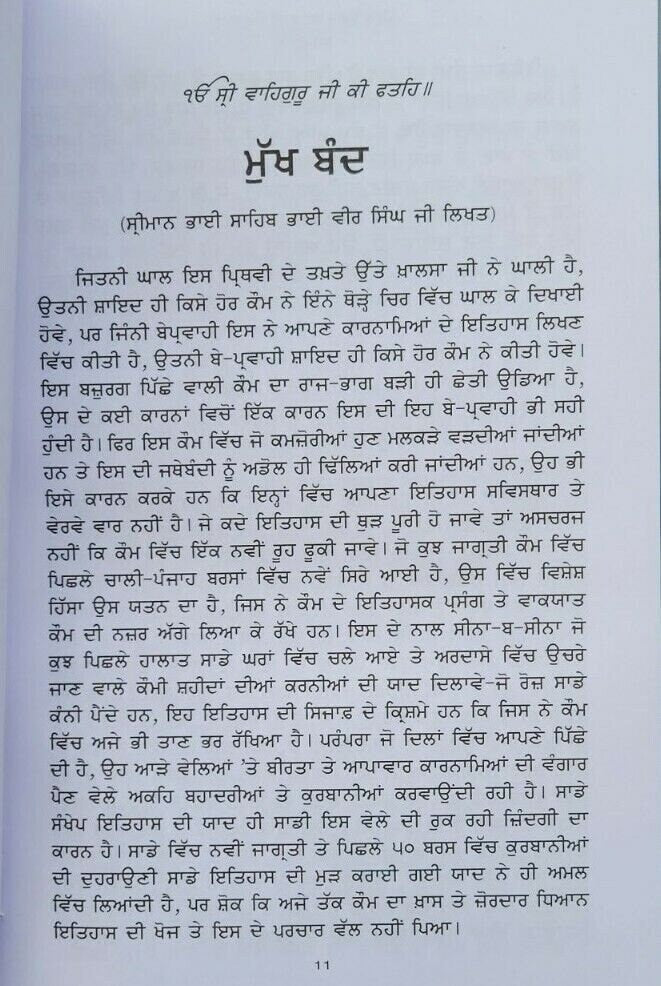 ੴ ਸ੍ਰੀ ਵਾਹਿਗੁਰੂ ਜੀ ਕੀ ਫਤਹਿ॥
ਮੁੱਖ ਬੰਦ
(ਸ੍ਰੀਮਾਨ ਭਾਈ ਸਾਹਿਬ ਭਾਈ ਵੀਰ ਸਿੰਘ ਜੀ ਲਿਖਤ)
ਜਿਤਨੀ ਘਾਲ ਇਸ ਪ੍ਰਿਥਵੀ ਦੇ ਤਖ਼ਤੇ ਉੱਤੇ ਖ਼ਾਲਸਾ ਜੀ ਨੇ ਘਾਲੀ ਹੈ,
ਉਤਨੀ ਸ਼ਾਇਦ ਹੀ ਕਿਸੇ ਹੋਰ ਕੌਮ ਨੇ ਇੰਨੇ ਥੋੜ੍ਹੇ ਚਿਰ ਵਿੱਚ ਘਾਲ ਕੇ ਦਿਖਾਈ
ਹੋਵੇ, ਪਰ ਜਿੰਨੀ ਬੇਪ੍ਰਵਾਹੀ ਇਸ ਨੇ ਆਪਣੇ ਕਾਰਨਾਮਿਆਂ ਦੇ ਇਤਿਹਾਸ ਲਿਖਣ
ਵਿੱਚ ਕੀਤੀ ਹੈ, ਉਤਨੀ ਬੇ-ਪ੍ਰਵਾਹੀ ਸ਼ਾਇਦ ਹੀ ਕਿਸੇ ਹੋਰ ਕੌਮ ਨੇ ਕੀਤੀ ਹੋਵੇ।
ਇਸ ਬਜ਼ੁਰਗ ਪਿੱਛੇ ਵਾਲੀ ਕੌਮ ਦਾ ਰਾਜ-ਭਾਗ ਬੜੀ ਹੀ ਛੇਤੀ ਉਡਿਆ ਹੈ,
ਉਸ ਦੇ ਕਈ ਕਾਰਨਾਂ ਵਿਚੋਂ ਇੱਕ ਕਾਰਨ ਇਸ ਦੀ ਇਹ ਬੇ-ਪ੍ਰਵਾਹੀ ਭੀ ਸਹੀ
ਹੁੰਦੀ ਹੈ। ਫਿਰ ਇਸ ਕੌਮ ਵਿੱਚ ਜੋ ਕਮਜ਼ੋਰੀਆਂ ਹੁਣ ਮਲਕੜੇ ਵੜਦੀਆਂ ਜਾਂਦੀਆਂ
ਹਨ ਤੇ ਇਸ ਦੀ ਜਥੇਬੰਦੀ ਨੂੰ ਅਡੋਲ ਹੀ ਢਿੱਲਿਆਂ ਕਰੀ ਜਾਂਦੀਆਂ ਹਨ, ਉਹ ਭੀ
ਇਸੇ ਕਾਰਨ ਕਰਕੇ ਹਨ ਕਿ ਇਨ੍ਹਾਂ ਵਿੱਚ ਆਪਣਾ ਇਤਿਹਾਸ ਸਵਿਸਥਾਰ ਤੇ
ਵੇਰਵੇ ਵਾਰ ਨਹੀਂ ਹੈ। ਜੇ ਕਦੇ ਇਤਿਹਾਸ ਦੀ ਥੁੜ ਪੂਰੀ ਹੋ ਜਾਵੇ ਤਾਂ ਅਸਚਰਜ
ਨਹੀਂ ਕਿ ਕੌਮ ਵਿੱਚ ਇੱਕ ਨਵੀਂ ਰੂਹ ਫੂਕੀ ਜਾਵੇ। ਜੋ ਕੁਝ ਜਾਗ੍ਰਤੀ ਕੌਮ ਵਿੱਚ
ਪਿਛਲੇ ਚਾਲੀ-ਪੰਜਾਹ ਬਰਸਾਂ ਵਿੱਚ ਨਵੇਂ ਸਿਰੇ ਆਈ ਹੈ, ਉਸ ਵਿੱਚ ਵਿਸ਼ੇਸ਼
ਹਿੱਸਾ ਉਸ ਯਤਨ ਦਾ ਹੈ, ਜਿਸ ਨੇ ਕੌਮ ਦੇ ਇਤਿਹਾਸਕ ਪ੍ਰਸੰਗ ਤੇ ਵਾਕਯਾਤ
ਕੌਮ ਦੀ ਨਜ਼ਰ ਅੱਗੇ ਲਿਆ ਕੇ ਰੱਖੇ ਹਨ। ਇਸ ਦੇ ਨਾਲ ਸੀਨਾ-ਬ-ਸੀਨਾ ਜੋ
ਕੁਝ ਪਿਛਲੇ ਹਾਲਾਤ ਸਾਡੇ ਘਰਾਂ ਵਿੱਚ ਚਲੇ ਆਏ ਤੇ ਅਰਦਾਸੇ ਵਿੱਚ ਉਚਰੇ
ਜਾਣ ਵਾਲੇ ਕੌਮੀ ਸ਼ਹੀਦਾਂ ਦੀਆਂ ਕਰਨੀਆਂ ਦੀ ਯਾਦ ਦਿਲਾਵੇ-ਜੋ ਰੋਜ਼ ਸਾਡੇ
ਕੰਨੀ ਪੈਂਦੇ ਹਨ, ਇਹ ਇਤਿਹਾਸ ਦੀ ਸਿਜਾਫ਼ ਦੇ ਕ੍ਰਿਸ਼ਮੇ ਹਨ ਕਿ ਜਿਸ ਨੇ ਕੌਮ
ਵਿੱਚ ਅਜੇ ਭੀ ਤਾਣ ਭਰ ਰੱਖਿਆ ਹੈ। ਪਰੰਪਰਾ ਜੋ ਦਿਲਾਂ ਵਿੱਚ ਆਪਣੇ ਪਿੱਛੇ
ਦੀ ਹੈ, ਉਹ ਆੜੇ ਵੇਲਿਆਂ 'ਤੇ ਬੀਰਤਾ ਤੇ ਆਪਾਵਾਰ ਕਾਰਨਾਮਿਆਂ ਦੀ ਵੰਗਾਰ
ਪੈਣ ਵੇਲੇ ਅਕਹਿ ਬਹਾਦਰੀਆਂ ਤੇ ਕੁਰਬਾਨੀਆਂ ਕਰਵਾਉਂਦੀ ਰਹੀ ਹੈ। ਸਾਡੇ
ਸੰਖੇਪ ਇਤਿਹਾਸ ਦੀ ਯਾਦ ਹੀ ਸਾਡੀ ਇਸ ਵੇਲੇ ਦੀ ਰੁਕ ਰਹੀ ਜ਼ਿੰਦਗੀ ਦਾ
ਕਾਰਨ ਹੈ। ਸਾਡੇ ਵਿੱਚ ਨਵੀਂ ਜਾਗ੍ਰਤੀ ਤੇ ਪਿਛਲੇ ੫੦ ਬਰਸ ਵਿੱਚ ਕੁਰਬਾਨੀਆਂ
ਦੀ ਦੁਹਰਾਉਣੀ ਸਾਡੇ ਇਤਿਹਾਸ ਦੀ ਮੁੜ ਕਰਾਈ ਗਈ ਯਾਦ ਨੇ ਹੀ ਅਮਲ
ਵਿੱਚ ਲਿਆਂਦੀ ਹੈ, ਪਰ ਸ਼ੋਕ ਕਿ ਅਜੇ ਤੱਕ ਕੌਮ ਦਾ ਖ਼ਾਸ ਤੇ ਜ਼ੋਰਦਾਰ ਧਿਆਨ
ਇਤਿਹਾਸ ਦੀ ਖੋਜ ਤੇ ਇਸ ਦੇ ਪਰਚਾਰ ਵੱਲ ਨਹੀਂ ਪਿਆ।
11